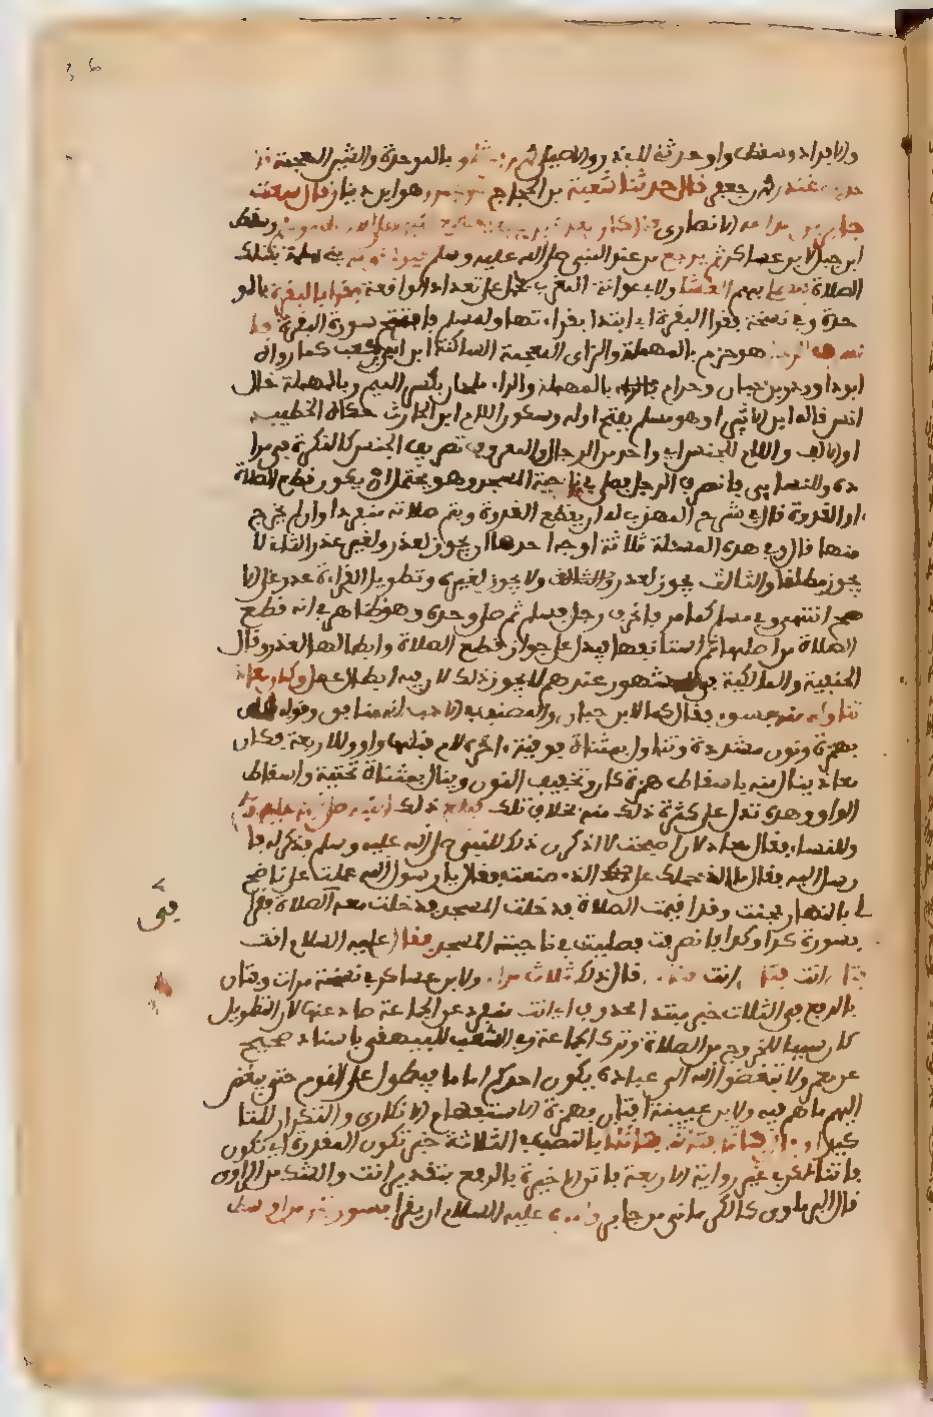 والايراد وسقط واو حدثني لابي ذر والاصيلي بن بشار بالموحدة والشين المعجمة
غندر محمد بن جعفر قال حدثنا شعبة بن الحجاج هو ابن دينار قال سمعت
جابر بن عبد الله الانصاري قال كان معاذ بن جبل وسقط
ابن جبل لابن عساكر ثم يرجع من عند النبي صلى الله عليه وسلم فيؤم قومه بتلك
الصلاة فصلى بهم العشا ولابي عوانة المغرب يحمل على تعداد الواقعة فقرا بالبقرة بالمو
حدة وفي نسخة يقرا البقرة اي ابتدا بقراءتها ولمسلم فافتتح سورة البقرة
الرجل هو حزم بالمهملة والزاي المعجمة الساكنة ابن ابي كعب كما رواه
ابو داود وابن حبان وحرام بالمهملة والراء ملحان بكسر الميم وبالمهملة خال
انس قاله ابن الاثير او هو سلم بفتح اوله وسكون اللام ابن الحارث حكاه الخطيب
او الالف واللام للجنس اي واحد من الرجال والمعرف تعريف الجنس كالنكرة في مرا
ده وللنسايي فانصرف الرجل فصلى في ناحية المسجد وهو يحتمل ان يكون قطع الصلاة
او القدوة قال في شرح المهذب له ان يقطع القدوة ويتم صلاته منفردا وان لم يخرج
منها قال وفي هذه المسئلة ثلاثة اوجه احدها ان يجوز لعذر ولغير عذر الثاني لا
يجوز مطلقا والثالث يجوز لعذر ولا يجوز لغيره وتطويل القراءة عذر على الا
صح انتهى وفي مسلم كما مر فانحرف رجل فسلم ثم صلى وحده وهو ظاهر في انه قطع
الصلاة من اصلها ثم استانفها فيدل على جواز قطع الصلاة وابطالها لعذر وقال
الحنفية والمالكية في المشهور عندهم لا يجوز ذلك لان فيه ابطال عمل وكان معاذ
تناول منه بسوء فقال كما لابن حبان والمصنف في الادب انه منافق وقوله
بهمزة ونون مشددة وتناول بمثناة فوقية اخره لام قبلها واو وللاربعة فكان
معاذ ينال منه باسقاط همزة كان وتخفيف النون وينال بمثناة تحتية واسقاط
الواو وهذه تدل على كثرة ذلك منه بخلاف تلك فبلغ ذلك النبي صلى الله عليه وسلم
وللنسايي فقال معاذ لان اصبحت لاذكرن ذلك للنبي صلى الله عليه وسلم فذكر له فا
رسل اليه فقال ما الذي حملك على الذي صنعت فقال يا رسول الله عملت على ناضح
لي بالنهار فجئت وقد اقيمت الصلاة فدخلت المسجد فدخلت معه الصلاة فقرا
بسورة كذا وكذا فانصرفت فصليت في ناحية المسجد فقال عليه السلام انت
فتان انت فتان انت فتان قال ذلك ثلاث مرار ولابن عساكر في نسخة مرات وفتان
بالرفع في الثلاث خبر مبتدا محذوف اي انت منفر عن الجماعة صاد عنها لان التطويل
كان سببا للخروج من الصلاة وترك الجماعة وفي الشعب للبيهقي باسناد صحيح
عن عمر ولا تبغضوا الله الى عباده يكون احدكم اماما فيطول على القوم حتى يبغض
اليهم ما هم فيه ولابن عيينة افتان بهمزة الاستفهام الانكاري والتكرار للتا
كيد او قال فاتنا فاتنا فاتنا بالنصب في الثلاثة خبر تكون المقدرة اي تكون
فاتنا لكن في غير رواية الاربعة فاتن الاخيرة بالرفع بتقدير انت والشك من الراوي
قال البرماوي كالكرماني من جابر وامره عليه السلام ان يقرا بسورتين من اوسط